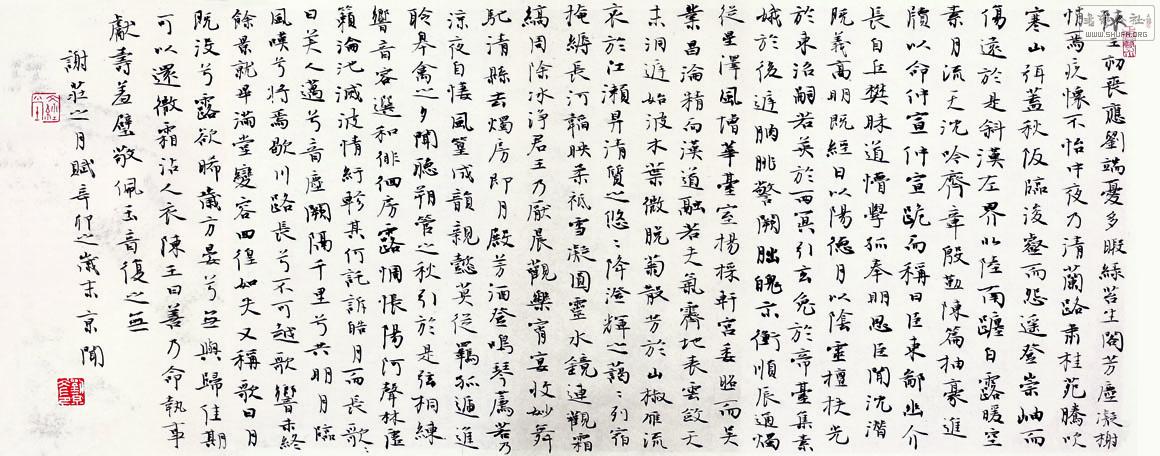 陳王初喪應劉端憂多暇綠苔生閣芳塵凝榭
悄焉疚懷不怡中夜乃清蘭路肅桂苑騰吹
寒山弭蓋秋阪臨浚壑而怨遙登崇岫而
傷遠於是斜漢左界北陸南躔白露曖空
素月流天沈吟齊章殷勤陳篇抽毫進
牘以命仲宣仲宣跪而稱曰臣東鄙幽介
長自丘樊昧道懵學孤奉明恩臣聞沈潛
既義高明既經日以陽德月以陰靈擅扶光
於東沼嗣若英於西冥引玄兔於帝臺集素
娥於後庭朒朓警闕朏魄示衝順辰通燭
從星澤風增華臺室揚採軒宮委照而吳
業昌淪精而漢道融若夫氣霽地表雲斂天
末洞庭始波木葉微脫菊散芳於山椒雁流
哀於江瀨昇清質之悠〻降澄輝之藹〻列宿
掩縟長河韜映柔祇雪凝圓靈水鏡連觀霜
縞周除冰淨君王乃厭晨歡樂宵宴收妙舞
弛清縣去燭房即月殿芳酒登鳴琴薦若乃
涼夜自悽風篁成韻親懿莫從羈孤遞進
聆皋禽之夕聞聽朔管之秋引於是弦桐練
響音容選和徘徊房露惆悵陽阿聲林虛
籟淪池滅波情紆軫其何託訴皓月而長歌〻
曰美人邁兮音塵闕隔千里兮共明月臨
風嘆兮將焉歇川路長兮不可越歌響未終
餘景就畢滿堂變容回徨如失又稱歌曰月
既沒兮露欲晞歲方晏兮無與歸佳期
可以還微霜沾人衣陳王曰善乃命執事
獻壽羞璧敬佩玉音復之無
謝莊之月賦辛卯之歲末京聞
WWW.SHUFA.ORG